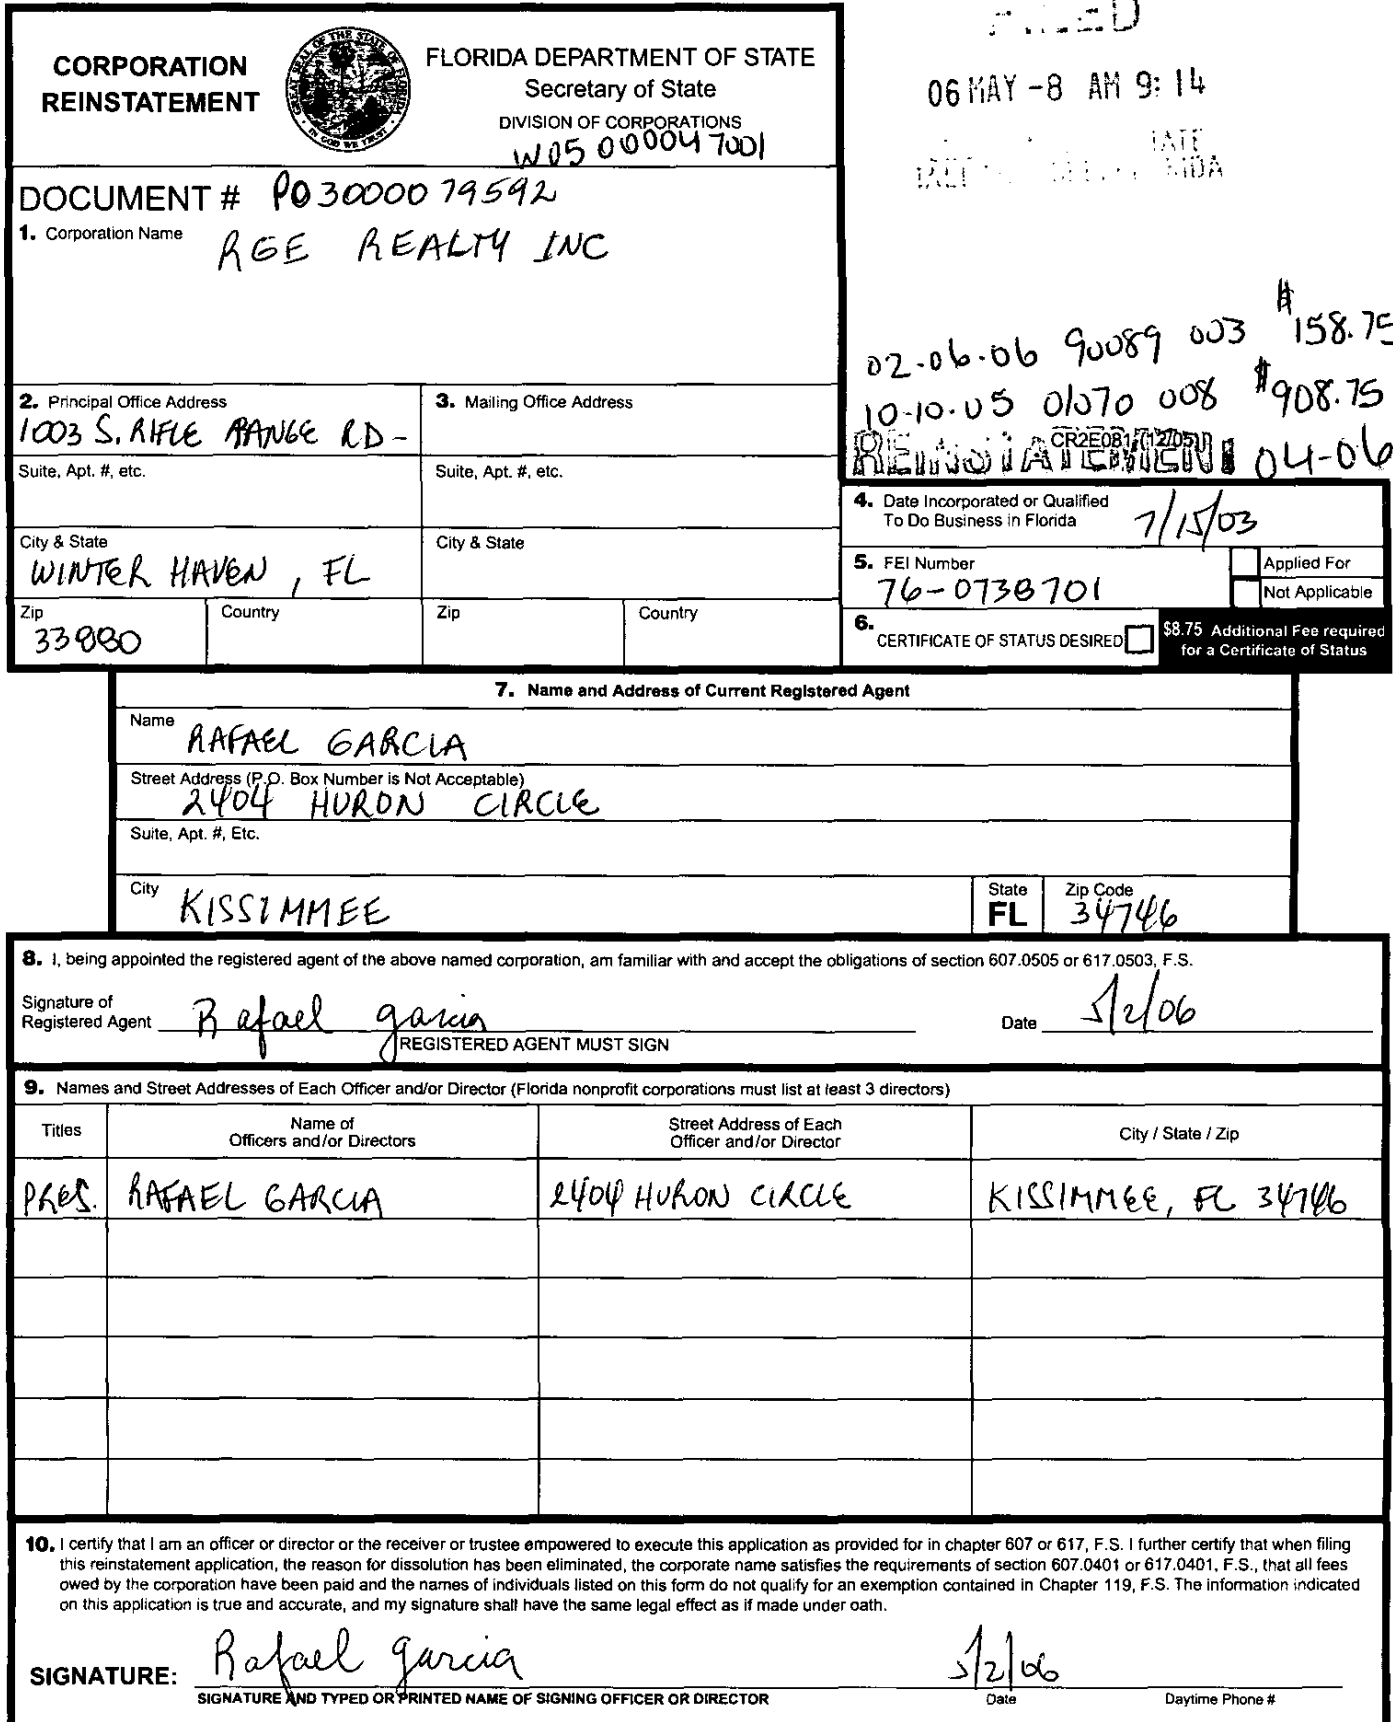 CORPORATION
REINSTATEMENT
GREAT SEAL OF THE STATE OF FLORIDA
IN GOD WE TRUST
FLORIDA DEPARTMENT OF STATE
Secretary of State
DIVISION OF CORPORATIONS
W05000047001
06 MAY -8 AM 9: 14
DOCUMENT # P03000079592
1. Corporation Name RGE REALTY INC
02-06-06 90089 003 $158.75
10-10-05 01070 008 $908.75
REINSTATEMENT 04-06
CR2E081 (12/05)
2. Principal Office Address
1003 S. RIFLE RANGE RD-
3. Mailing Office Address
Suite, Apt. #, etc.
Suite, Apt. #, etc.
City & State
WINTER HAVEN, FL
City & State
Zip
33880
Country
Zip
Country
4. Date Incorporated or Qualified
To Do Business in Florida 7/15/03
5. FEI Number
76-0738701
Applied For
Not Applicable
6.
CERTIFICATE OF STATUS DESIRED
$8.75 Additional Fee required
for a Certificate of Status
7. Name and Address of Current Registered Agent
Name RAFAEL GARCIA
Street Address (P.O. Box Number is Not Acceptable)
2404 HURON CIRCLE
Suite, Apt. #, Etc.
City KISSIMMEE
State
FL
Zip Code
34746
8. I, being appointed the registered agent of the above named corporation, am familiar with and accept the obligations of section 607.0505 or 617.0503, F.S.
Signature of
Registered Agent Rafael garcia
REGISTERED AGENT MUST SIGN
Date 5/2/06
9. Names and Street Addresses of Each Officer and/or Director (Florida nonprofit corporations must list at least 3 directors)
Titles
Name of
Officers and/or Directors
Street Address of Each
Officer and/or Director
City / State / Zip
PRES. RAFAEL GARCIA 2404 HURON CIRCLE KISSIMMEE, FL 34746
10. I certify that I am an officer or director or the receiver or trustee empowered to execute this application as provided for in chapter 607 or 617, F.S. I further certify that when filing
this reinstatement application, the reason for dissolution has been eliminated, the corporate name satisfies the requirements of section 607.0401 or 617.0401, F.S., that all fees
owed by the corporation have been paid and the names of individuals listed on this form do not qualify for an exemption contained in Chapter 119, F.S. The information indicated
on this application is true and accurate, and my signature shall have the same legal effect as if made under oath.
SIGNATURE: Rafael garcia 5/2/06
SIGNATURE AND TYPED OR PRINTED NAME OF SIGNING OFFICER OR DIRECTOR
Date
Daytime Phone #